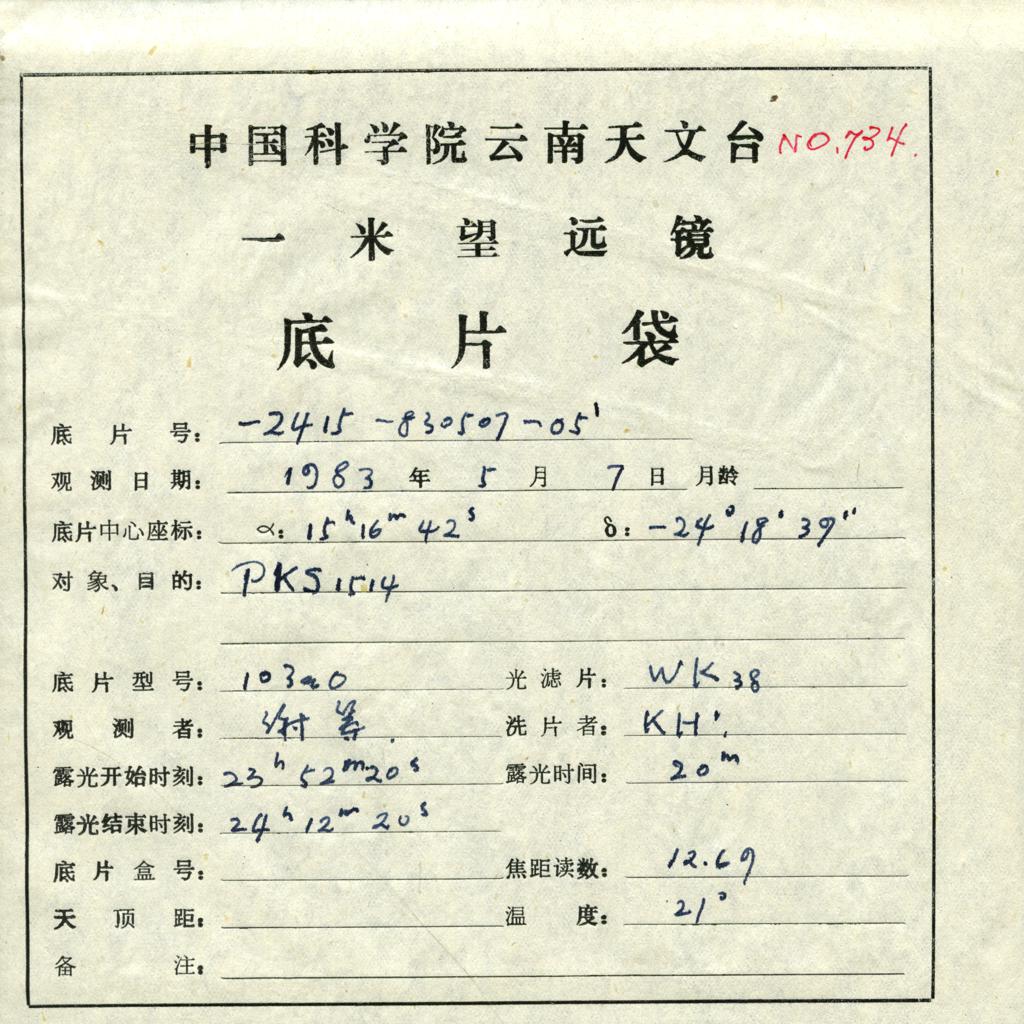 中国科学院云南天文台 NO.734.
一米望远镜
底片袋
底片号: -2415 -830507 -05'
观测日期: 1983 年 5 月 7 日 月龄
底片中心座标: α: 15h 16m 42s δ: -24° 18' 39"
对象、目的: PKS 1514
底片型号: 103aO 光滤片: WK 38
观测者: 谢 洗片者: KH'.
露光开始时刻: 23h 52m 20s 露光时间: 20m
露光结束时刻: 24h 12m 20s
底片盒号: 焦距读数: 12.69
天顶距: 温度: 21°
备注: